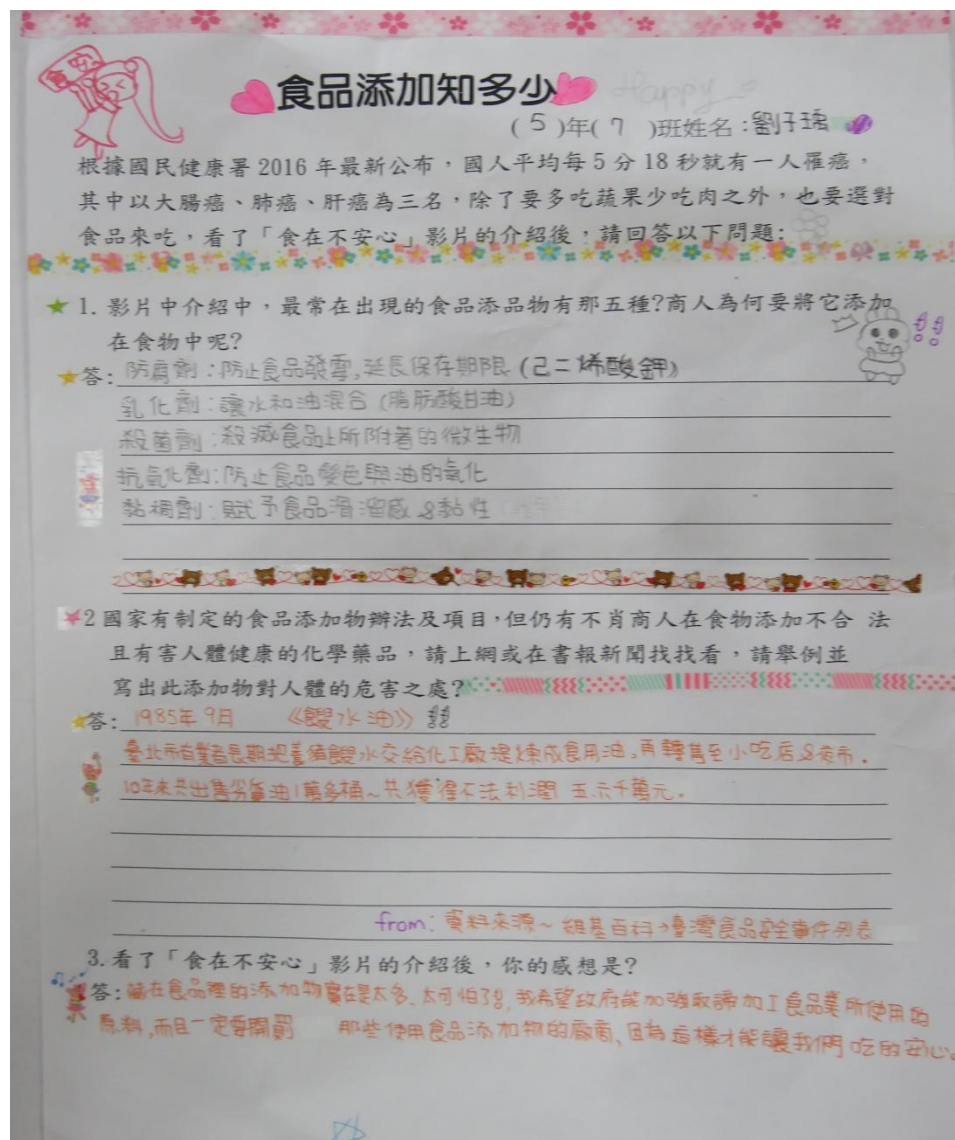 食品添加知多少 Happy
(5)年(7)班姓名:劉子瑀
根據國民健康署2016年最新公布,國人平均每5分18秒就有一人罹癌,
其中以大腸癌、肺癌、肝癌為三名,除了要多吃蔬果少吃肉之外,也要選對
食品來吃,看了「食在不安心」影片的介紹後,請回答以下問題:
1. 影片中介紹中,最常在出現的食品添品物有那五種?商人為何要將它添加
在食物中呢?
答:防腐劑:防止食品發霉,延長保存期限(己二烯酸鉀)
乳化劑:讓水和油混合(脂肪酸甘油)
殺菌劑:殺滅食品上所附著的微生物
抗氧化劑:防止食品變色與油的氧化
黏稠劑:賦予食品滑溜感&黏性
2國家有制定的食品添加物辦法及項目,但仍有不肖商人在食物添加不合 法
且有害人體健康的化學藥品,請上網或在書報新聞找找看,請舉例並
寫出此添加物對人體的危害之處?
答:1985年9月 《餿水油》!!
臺北市有業者長期把養豬餿水交給化工廠提煉成食用油,再轉售至小吃店&夜市。
10年來共出售劣質油1萬多桶~共獲得不法利潤 五六千萬元。
from:資料來源~維基百科→臺灣食品安全事件列表
3.看了「食在不安心」影片的介紹後,你的感想是?
答:藏在食品裡的添加物實在是太多、太可怕了!,我希望政府能加強取締加工食品業所使用的
原料,而且一定要開罰 那些使用食品添加物的廠商,因為這樣才能讓我們吃的安心。